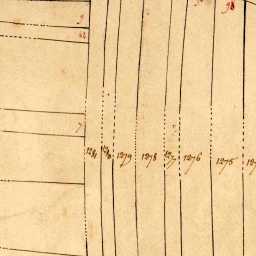 98
9
7
1281 1280 1279 1278 1277 1276 1275